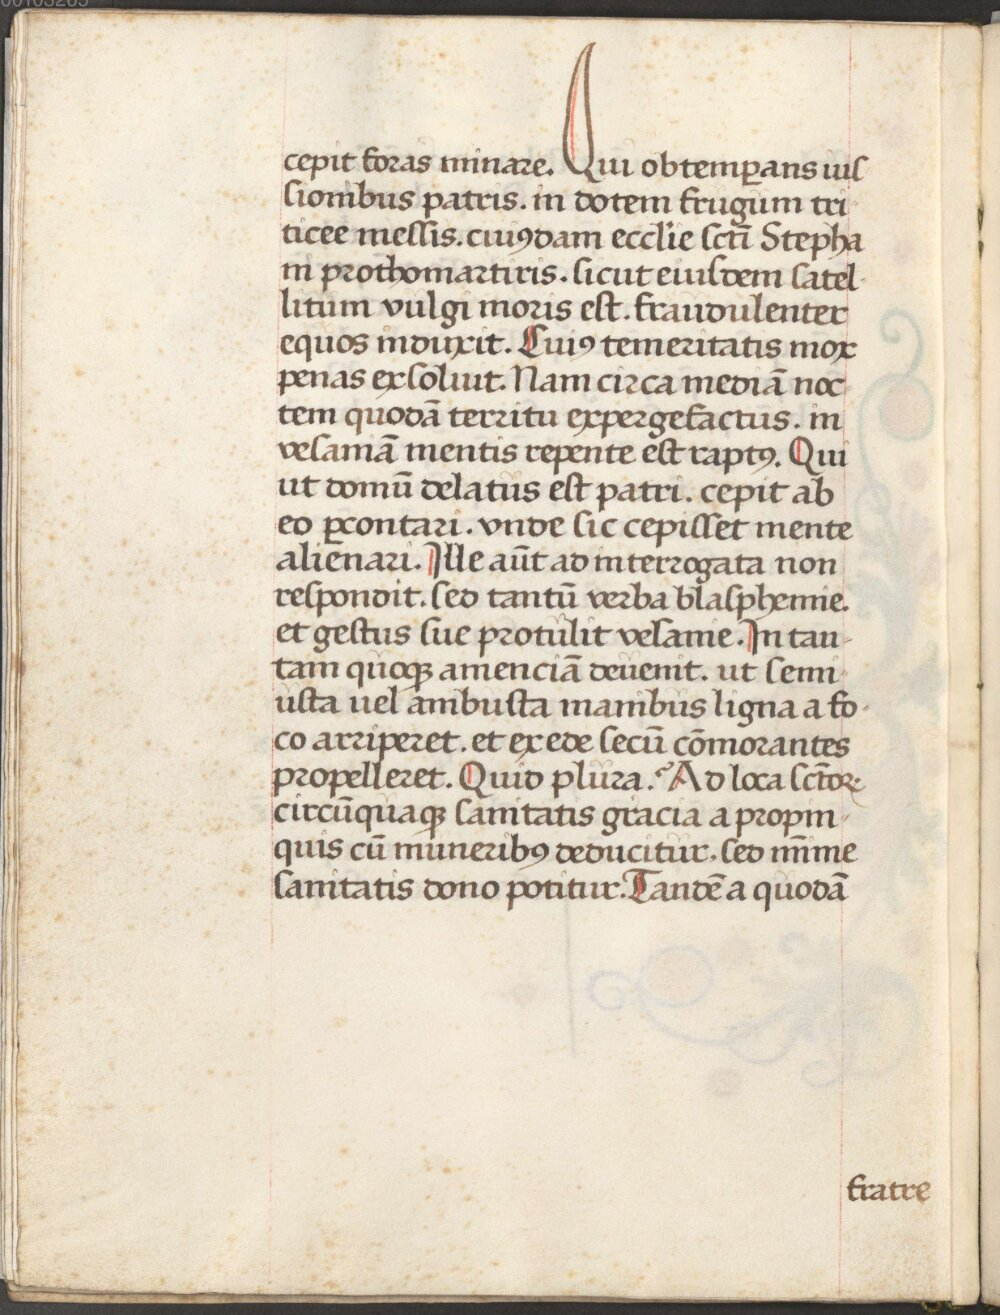 cepit foras minare. Qui obtemꝑans iuſ
ſionibus patris. in dotem frugum tri-
ticee meſſis. cuiꝰdam eccl̄ie sct̄i Stepha
ni prothomartiris. ſicut eiuſdem ſatel-
litum vulgi moris eſt. fraudulenter
equos induxit. Cuiꝰ temeritatis mox
penas exſoluit. Nam circa mediā noc-
tem quodā territu expergefactus. in
veſaniā mentis repente eſt raptꝰ. Qui
ut domū delatus eſt patri. cepit ab
eo ꝑcontari. vnde ſic cepiſſet mente
alienari. Ille aūt ad interrogata non
reſpondit. ſed tantū verba blaſphemie.
et geſtus ſue protulit veſanie. In tan-
tam quoqꝫ amenciā deuenit. ut ſemi-
uſta uel ambuſta manibus ligna a fo-
co arriperet. et ex ede ſecū cōmorantes
propelleret. Quid plura. Ad loca sctōꝝ
circūquaqꝫ ſanitatis gracia a propin-
quis cū muneribꝰ deducitur. ſed mīme
ſanitatis dono potitur. Tandē a quodā
fratre